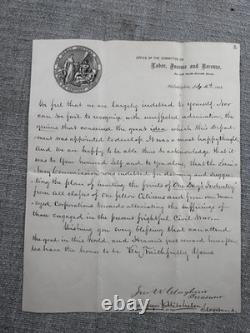 OFFICE OF THE COMMITTEE ON
Labor, Income and Revenue,
Philadelphia, July 1864
We feel that we are largely indebted to yourself, nor
can we fail to recognize with unaffected admiration, the
genius that conceived the great idea which this depart-
ment was appointed to develop. It was a most happy thought
and we are happy to be able thus to acknowledge that it
was to your honored self and to you alone, that the Sani-
tary Commission was indebted for devising and sugges-
ting the plan of uniting the fruits of One Day's Industry
from all classes of our fellow Citizens and from our mon-
eyed Corporations towards alleviating the sufferings of
those engaged in the present frightful Civil War.
Wishing you every blessing that can attend
the good in this World, and
we have the honor to be Very Truthfully Yours
Jno. W. Claghorn
Treasurer
Chairman
ebay